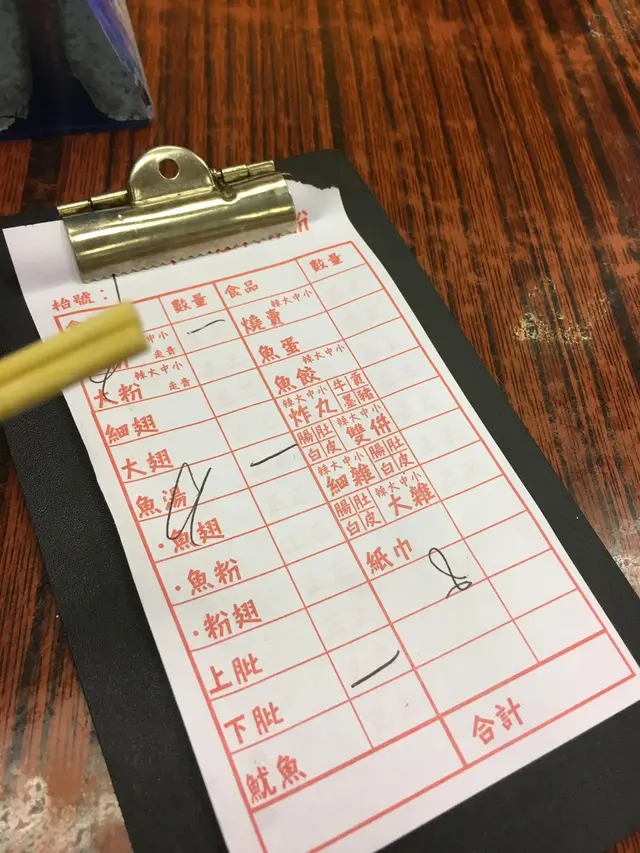 粉
枱號：
數量 食品 數量
辣大中小
走青
燒賣 辣大中小
大粉 辣大中小 走青
魚蛋
細翅
魚餃 辣大中小
大翅
炸丸 辣大中小 牛貢墨豬
魚湯
腸肚白皮 雙併 辣大中小
・魚翅
細雜 辣大中小 腸肚白皮
・魚粉
腸肚白皮 大雜 辣大中小
・粉翅
紙巾
上肶
下肶
魷魚
合計